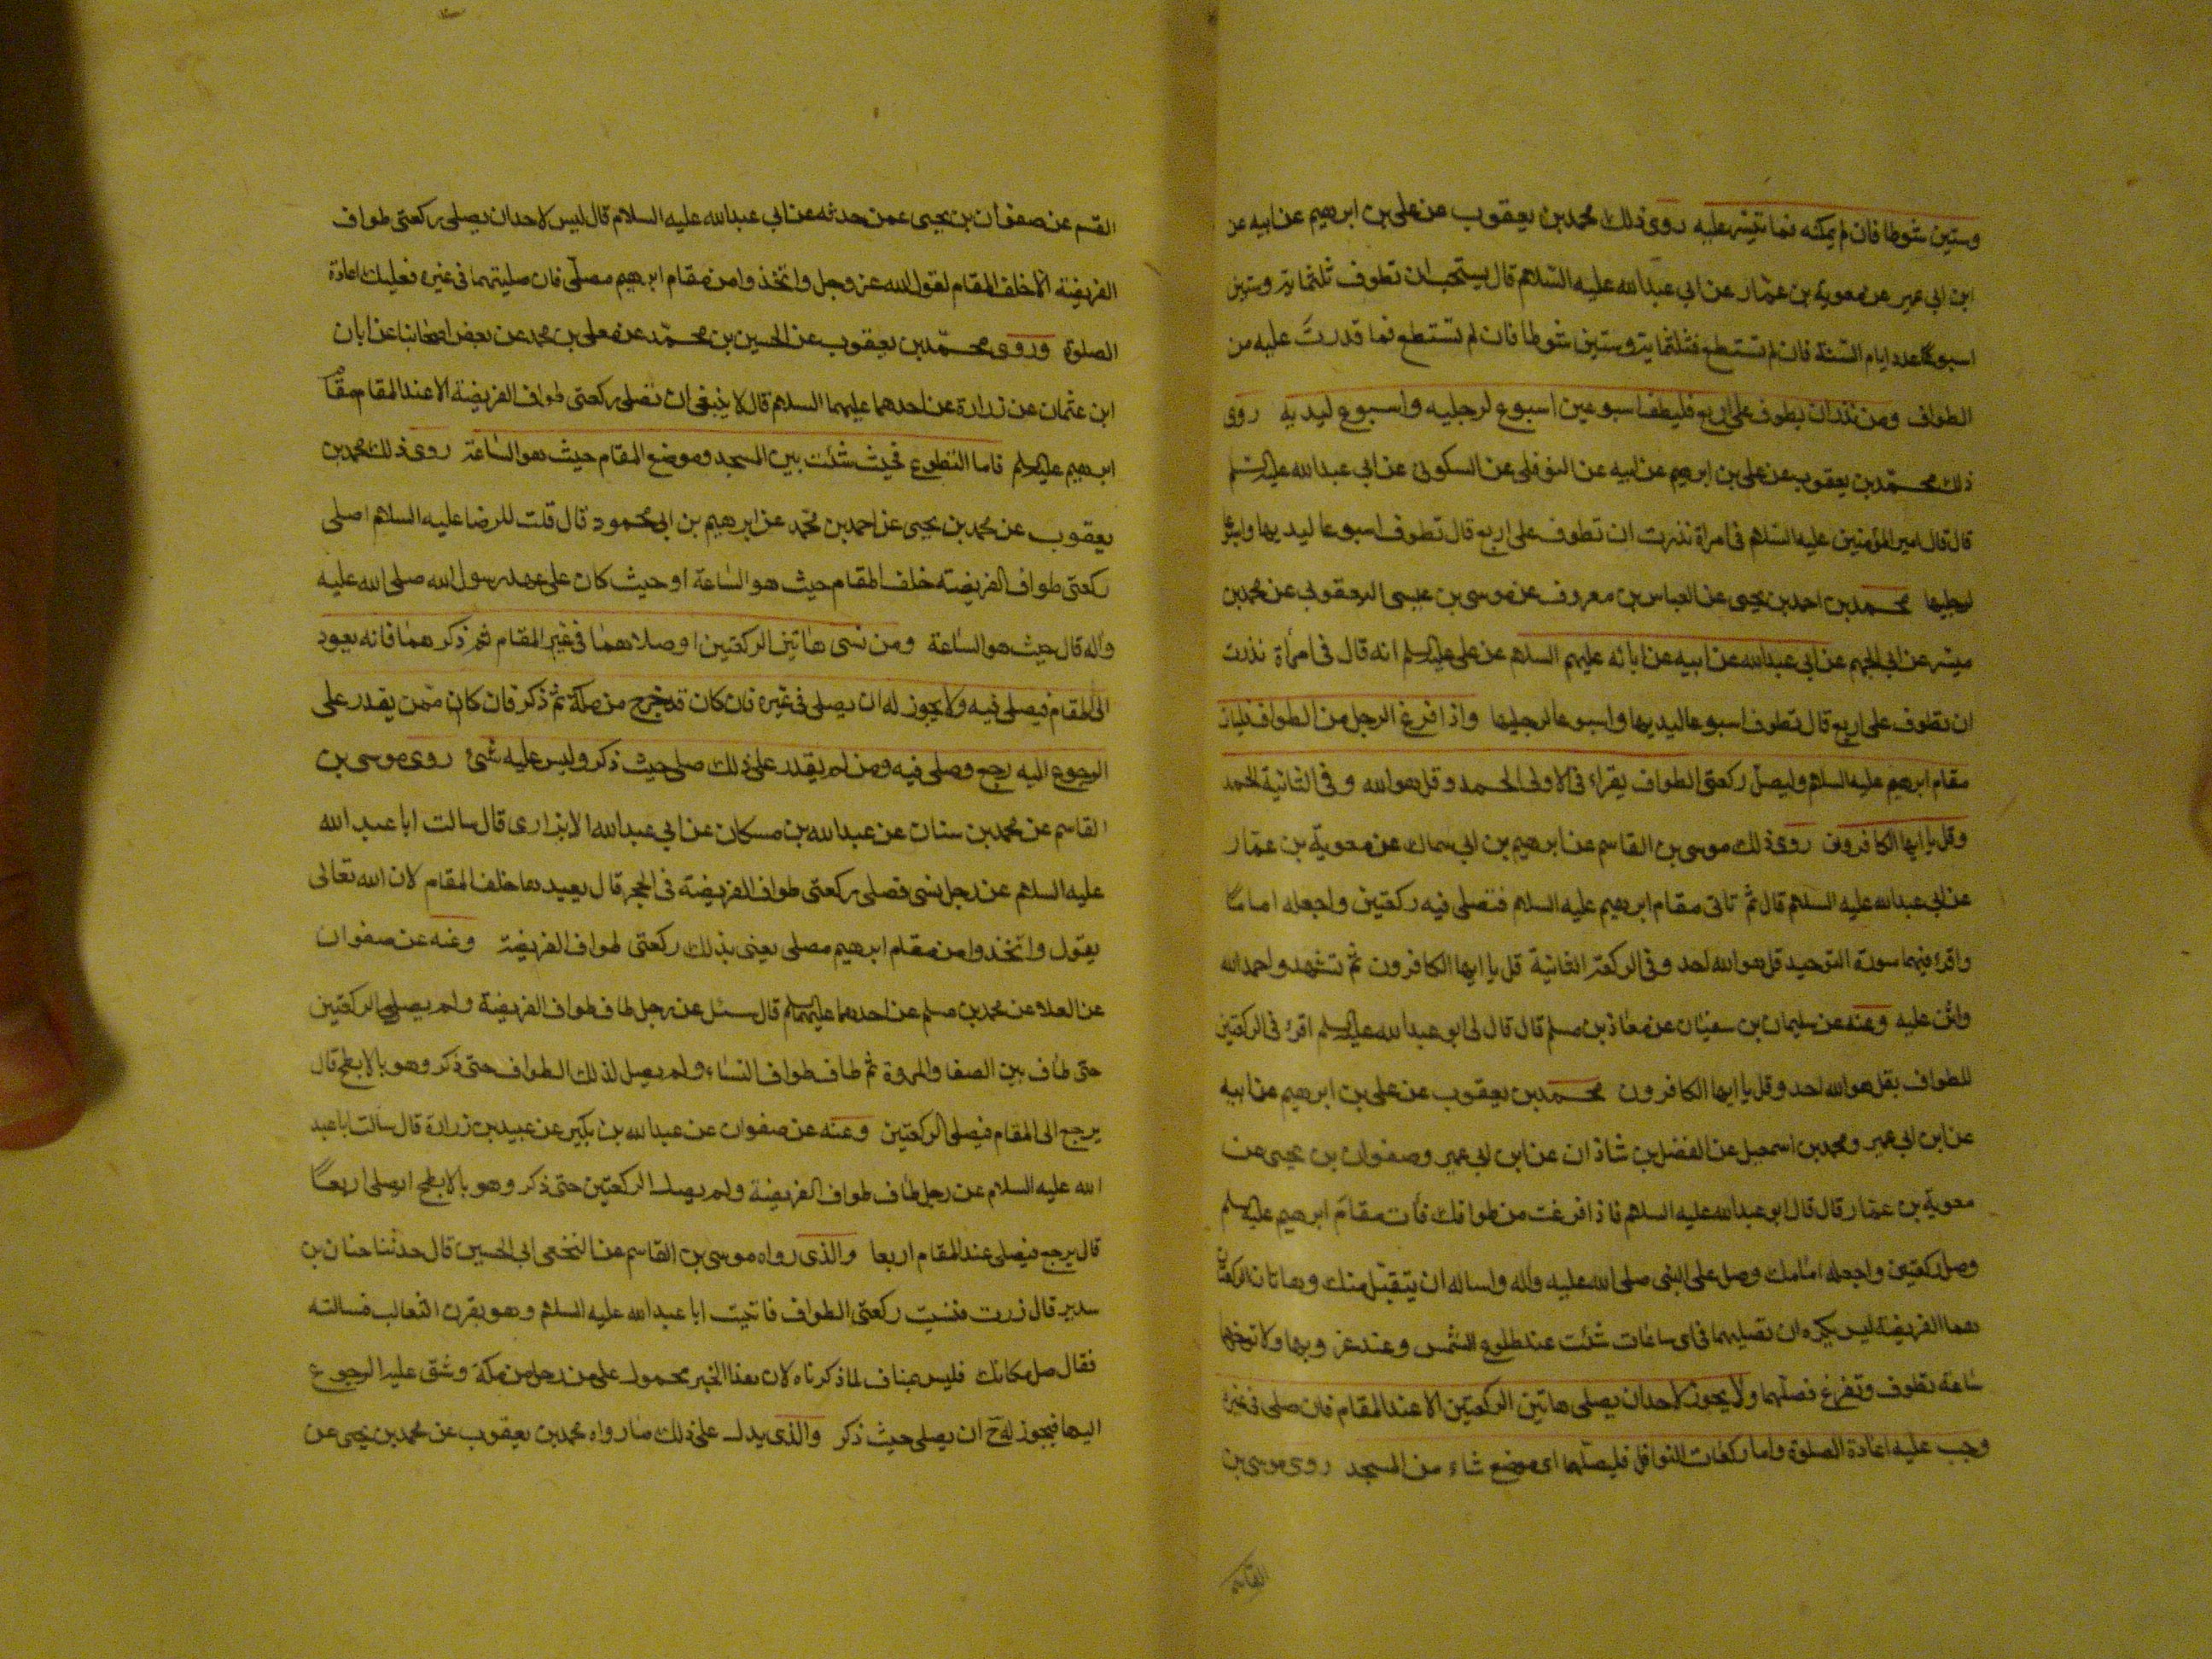 وستين شوطا فان لم يمكنه فما تيسر عليه روى ذلك محمد بن يعقوب عن على بن ابرهيم عن ابيه عن
ابن ابى عمير عن معوية بن عمار عن ابى عبد الله عليه السلام قال يستحب ان تطوف ثلثماية وستين
اسبوعا عدد ايام السنة فان لم تستطع فثلثماية وستين شوطا فان لم تستطع فما قدرت عليه من
الطواف ومن نذر ان يطوف على اربع فليطف اسبوعين اسبوع لرجليه واسبوع ليديه روى
ذلك محمد بن يعقوب عن على بن ابرهيم عن ابيه عن النوفلى عن السكونى عن ابى عبد الله عليه السلم
قال قال امير المؤمنين عليه السلام فى امراة نذرت ان تطوف على اربع قال تطوف اسبوعا ليديها واسبوعا
لرجليها محمد بن احمد بن يحيى عن العباس بن معروف عن موسى بن عيسى اليعقوبى عن محمد بن
ميسر عن ابى الجهم عن ابى عبد الله عن ابيه عن ابائه عليهم السلام عن على عليه السلم انه قال فى امرأة نذرت
ان تطوف على اربع قال تطوف اسبوعا ليديها واسبوعا لرجليها واذا فرغ الرجل من الطواف فليات
مقام ابرهيم عليه السلام وليصل ركعتى الطواف يقراء فى الاولى الحمد وقل هو الله وفى الثانية الحمد
وقل يا ايها الكافرون روى ذلك موسى بن القاسم عن ابرهيم بن ابى سماك عن معوية بن عمار
عن ابى عبد الله عليه السلام قال ثم تاتى مقام ابرهيم عليه السلام فتصلى فيه ركعتين واجعله اماما
واقرء فيهما سورة التوحيد قل هو الله احد وفى الركعة الثانية قل يا ايها الكافرون ثم تشهد واحمد الله
واثن عليه وعنه عن سليمان بن سفيان عن معاذ بن مسلم قال قال لى ابو عبد الله عليه السلم اقرء فى الركعتين
للطواف بقل هو الله احد وقل يا ايها الكافرون محمد بن يعقوب عن على بن ابرهيم عن ابيه
عن ابن ابى عمير ومحمد بن اسمعيل عن الفضل بن شاذان عن ابن ابى عمير وصفوان بن يحيى عن
معوية بن عمار قال قال ابو عبد الله عليه السلام فاذا فرغت من طوافك فأت مقام ابرهيم عليه السلم
وصل ركعتين واجعله امامك وصل على النبى صلى الله عليه وآله واساله ان يتقبل منك وهاتان الركعتان
هما الفريضة ليس يكره ان تصليهما فى اى ساعات شئت عند طلوع الشمس وعند غروبها ولا تؤخرها
ساعة تطوف وتفرغ فصلهما ولا يجوز لاحد ان يصلى هاتين الركعتين الا عند المقام فان صلى فى غيره
وجب عليه اعادة الصلوة واما ركعات النوافل فليصلها اى موضع شاء من المسجد روى موسى بن
القاسم
القسم عن صفوان بن يحيى عمن حدثه عن ابى عبد الله عليه السلام قال ليس لاحد ان يصلى ركعتى طواف
الفريضة الا خلف المقام لقول الله عز وجل واتخذوا من مقام ابرهيم مصلى فان صليتهما فى غيره فعليك اعادة
الصلوة وروى محمد بن يعقوب عن الحسين بن محمد عن معلى بن محمد عن بعض اصحابنا عن ابان
ابن عثمان عن زرارة عن احدهما عليهما السلام قال لا ينبغى ان تصلى ركعتى طواف الفريضة الا عند المقام مقام
ابرهيم عليه السلم فاما التطوع فحيث شئت بين المسجد وموضع المقام حيث هو الساعة روى ذلك محمد بن
يعقوب عن محمد بن يحيى عن احمد بن محمد عن ابرهيم بن ابى محمود قال قلت للرضا عليه السلام اصلى
ركعتى طواف الفريضة خلف المقام حيث هو الساعة او حيث كان على عهد رسول الله صلى الله عليه
وآله قال حيث هو الساعة ومن نسى هاتين الركعتين او صلاهما فى غير المقام ثم ذكرهما فانه يعود
الى المقام فيصلى فيه ولا يجوز له ان يصلى فى غيره فان كان قد خرج من مكة ثم ذكر فان كان ممن يقدر على
الرجوع اليه رجع وصلى فيه ومن لم يقدر على ذلك صلى حيث ذكر وليس عليه شئ روى موسى بن
القاسم عن محمد بن سنان عن عبد الله بن مسكان عن ابى عبد الله الابزارى قال سالت ابا عبد الله
عليه السلام عن رجل نسى فصلى ركعتى طواف الفريضة فى الحجر قال يعيدهما خلف المقام لان الله تعالى
يقول واتخذوا من مقام ابرهيم مصلى يعنى بذلك ركعتى طواف الفريضة وعنه عن صفوان
عن العلا عن محمد بن مسلم عن احدهما عليهما السلم قال سئل عن رجل طاف طواف الفريضة ولم يصلى الركعتين
حتى طاف بين الصفا والمروة ثم طاف طواف النساء ولم يصل لذلك الطواف حتى ذكر وهو بالابطح قال
يرجع الى المقام فيصلى الركعتين وعنه عن صفوان عن عبد الله بن بكير عن عبيد بن زرارة قال سالت ابا عبد
الله عليه السلام عن رجل طاف طواف الفريضة ولم يصل الركعتين حتى ذكر وهو بالابطح ايصلى اربعا
قال يرجع فيصلى عند المقام اربعا والذى رواه موسى بن القاسم عن النخعى ابى الحسين قال حدثنا حنان بن
سدير قال زرت فنسيت ركعتى الطواف فاتيت ابا عبد الله عليه السلام وهو بقرن الثعالب فسالته
فقال صل مكانك فليس بمناف لما ذكرناه لان هذا الخبر محمول على من رحل من مكة وشق عليه الرجوع
اليها فيجوز له ح ان يصلى حيث ذكر والذى يدل على ذلك ما رواه محمد بن يعقوب عن محمد بن يحيى عن